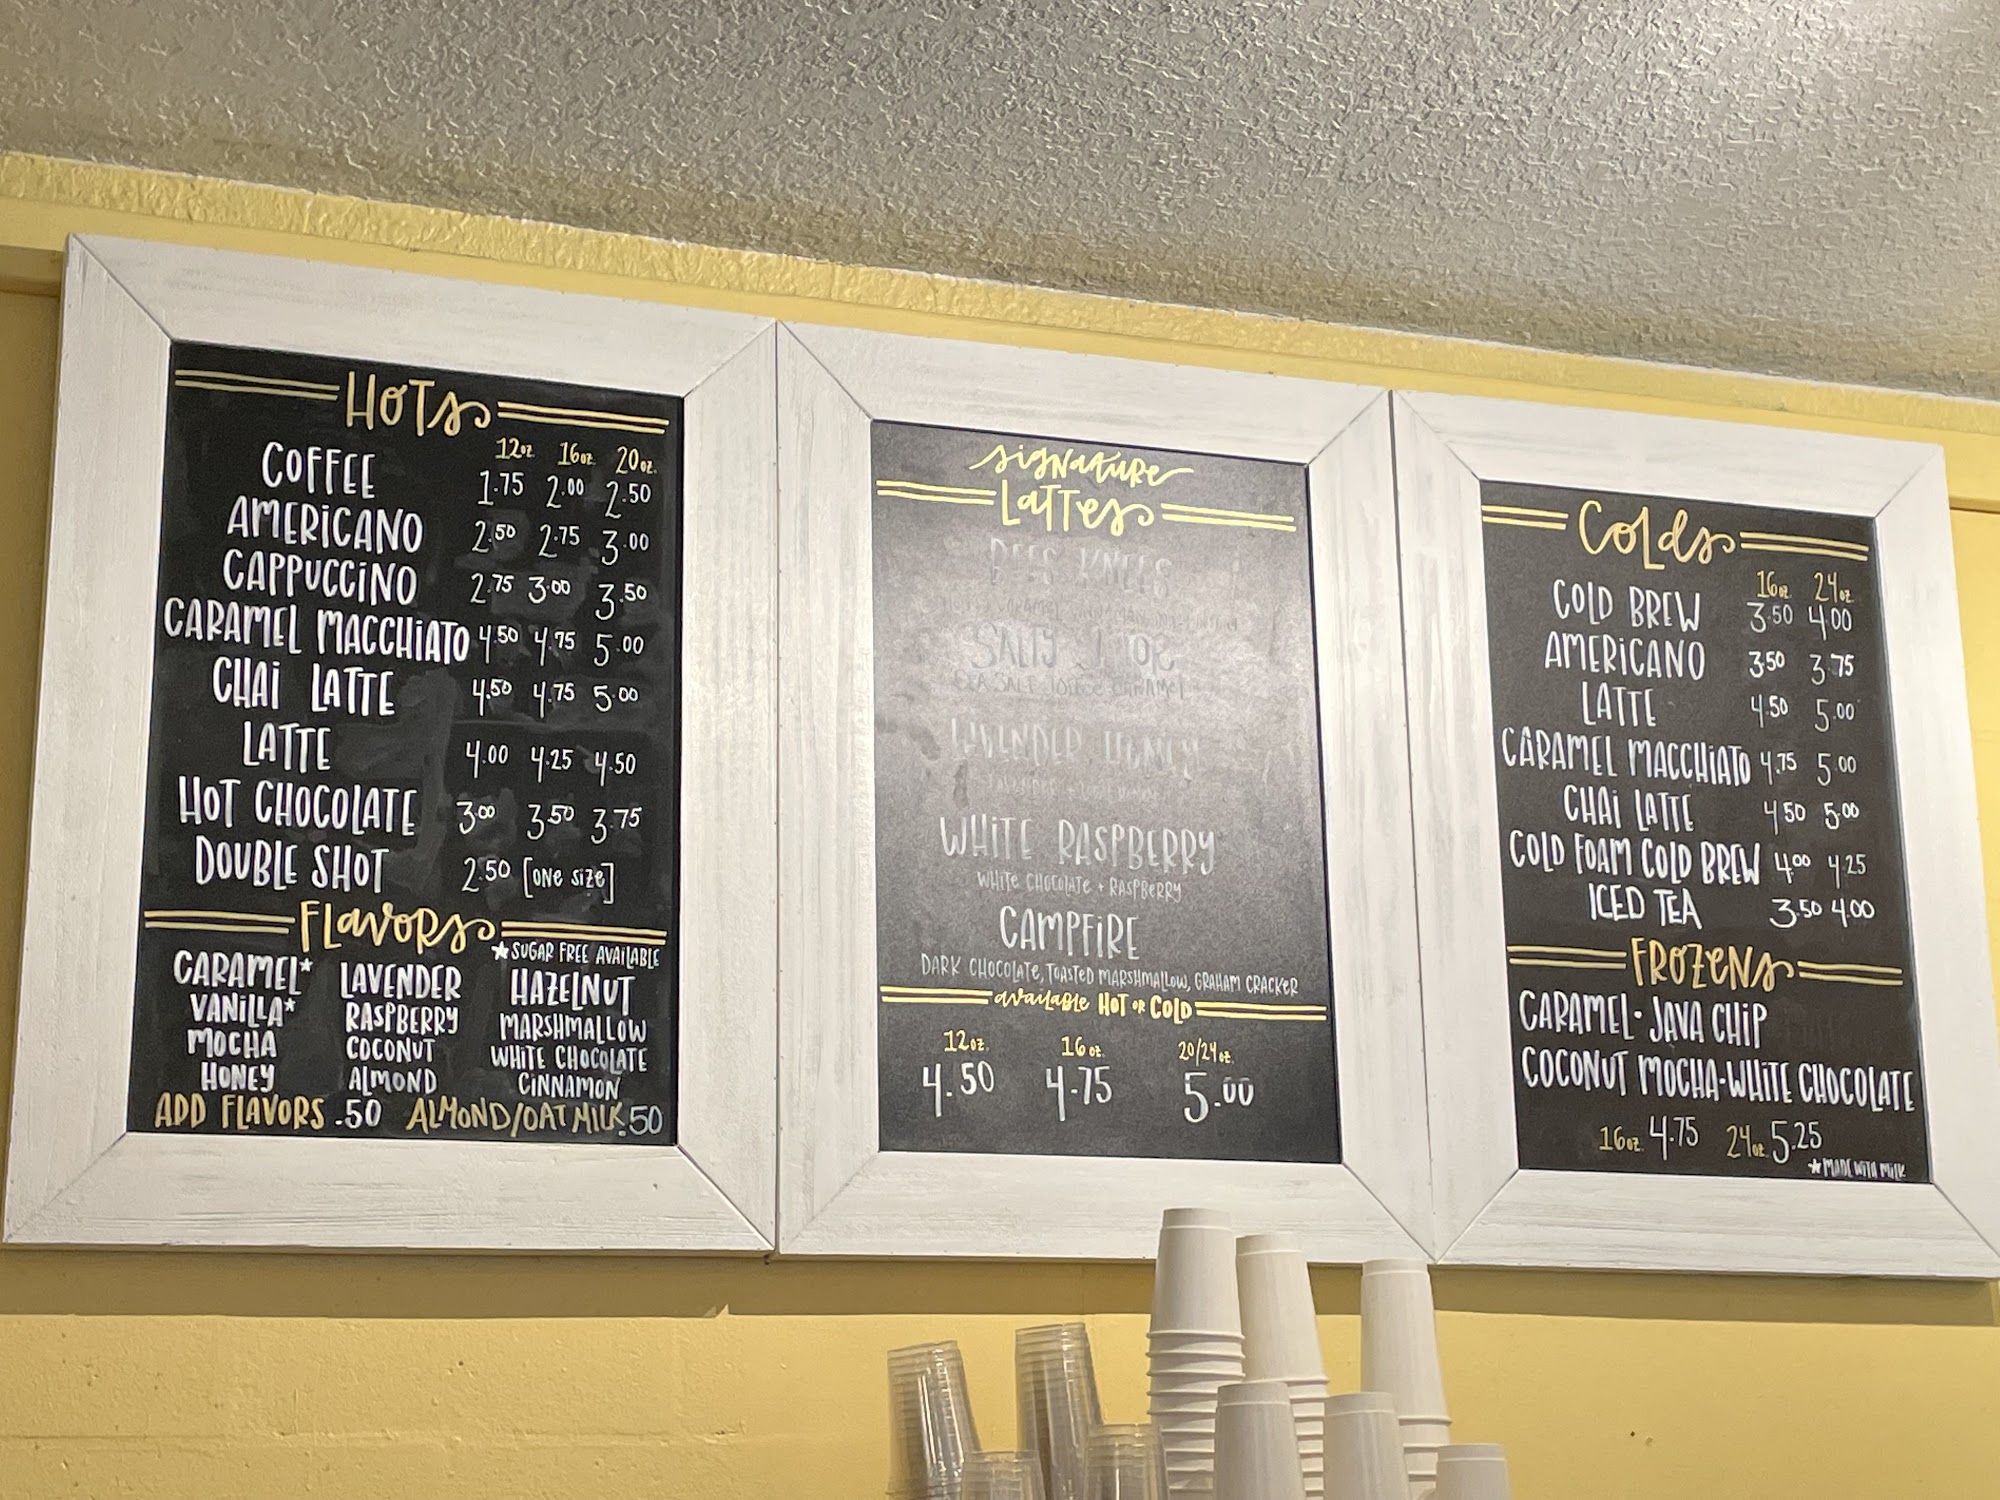 HOTS
12oz. 16oz. 20oz.
COFFEE 1.75 2.00 2.50
AMERICANO 2.50 2.75 3.00
CAPPUCCINO 2.75 3.00 3.50
CARAMEL MACCHIATO 4.50 4.75 5.00
CHAI LATTE 4.50 4.75 5.00
LATTE 4.00 4.25 4.50
HOT CHOCOLATE 3.00 3.50 3.75
DOUBLE SHOT 2.50 [ONE SIZE]
FLAVORS
*SUGAR FREE AVAILABLE
CARAMEL* LAVENDER HAZELNUT
VANILLA* RASPBERRY MARSHMALLOW
MOCHA COCONUT WHITE CHOCOLATE
HONEY ALMOND CINNAMON
ADD FLAVORS .50 ALMOND/OAT MILK .50
SIGNATURE
LATTES
BEES KNEES
SALTY
SEA SALT CARAMEL
LAVENDER HONEY
WHITE RASPBERRY
WHITE CHOCOLATE + RASPBERRY
CAMPFIRE
DARK CHOCOLATE, TOASTED MARSHMALLOW, GRAHAM CRACKER
AVAILABLE HOT OR COLD
12oz. 16oz. 20/24oz.
4.50 4.75 5.00
COLDS
16oz 24oz.
COLD BREW 3.50 4.00
AMERICANO 3.50 3.75
LATTE 4.50 5.00
CARAMEL MACCHIATO 4.75 5.00
CHAI LATTE 4.50 5.00
COLD FOAM COLD BREW 4.00 4.25
ICED TEA 3.50 4.00
FROZENS
CARAMEL· JAVA CHIP
COCONUT MOCHA·WHITE CHOCOLATE
16oz. 4.75 24oz. 5.25
*MADE WITH MILK